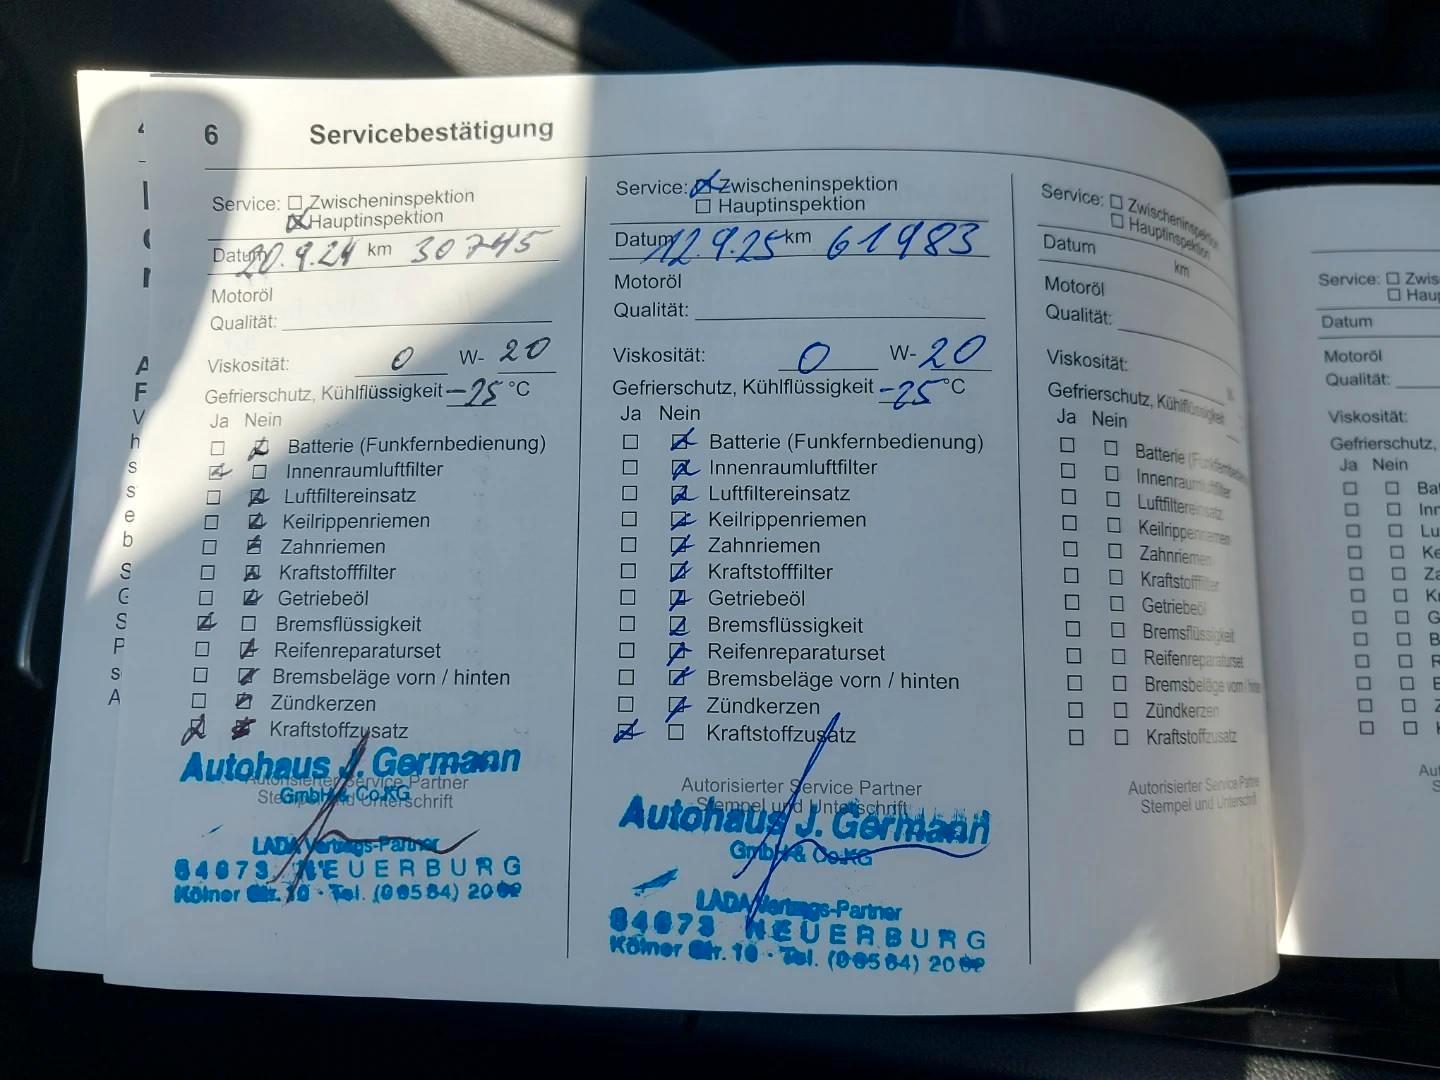 6 Servicebestätigung
Service: Zwischeninspektion
Hauptinspektion
Datum 20.9.24 km 30745
Motoröl
Qualität:
Viskosität: 0 W- 20
Gefrierschutz, Kühlflüssigkeit -25 °C
Ja Nein
Batterie (Funkfernbedienung)
Innenraumluftfilter
Luftfiltereinsatz
Keilrippenriemen
Zahnriemen
Kraftstofffilter
Getriebeöl
Bremsflüssigkeit
Reifenreparaturset
Bremsbeläge vorn / hinten
Zündkerzen
Kraftstoffzusatz
Autorisierter Service Partner
Stempel und Unterschrift
Autohaus J. Germann
GmbH & Co.KG
LADA Vertrags-Partner
54673 NEUERBURG
Kölner Str. 10 · Tel. (06564) 20
Service: Zwischeninspektion
Hauptinspektion
Datum 12.9.25 km 61983
Motoröl
Qualität:
Viskosität: 0 W- 20
Gefrierschutz, Kühlflüssigkeit -25 °C
Ja Nein
Batterie (Funkfernbedienung)
Innenraumluftfilter
Luftfiltereinsatz
Keilrippenriemen
Zahnriemen
Kraftstofffilter
Getriebeöl
Bremsflüssigkeit
Reifenreparaturset
Bremsbeläge vorn / hinten
Zündkerzen
Kraftstoffzusatz
Autorisierter Service Partner
Stempel und Unterschrift
Autohaus J. Germann
GmbH & Co.KG
LADA Vertrags-Partner
54673 NEUERBURG
Kölner Str. 10 · Tel. (06564) 20
Service: Zwischeninspektion
Hauptinspektion
Datum km
Motoröl
Qualität:
Viskosität:
Gefrierschutz, Kühlflüssigkeit
Ja Nein
Batterie (Funkfernbedienung)
Innenraumluftfilter
Luftfiltereinsatz
Keilrippenriemen
Zahnriemen
Kraftstofffilter
Getriebeöl
Bremsflüssigkeit
Reifenreparaturset
Bremsbeläge vorn / hinten
Zündkerzen
Kraftstoffzusatz
Autorisierter Service Partner
Stempel und Unterschrift
Service:
Datum
Motoröl
Qualität:
Viskosität:
Gefrierschutz,
Ja Nein